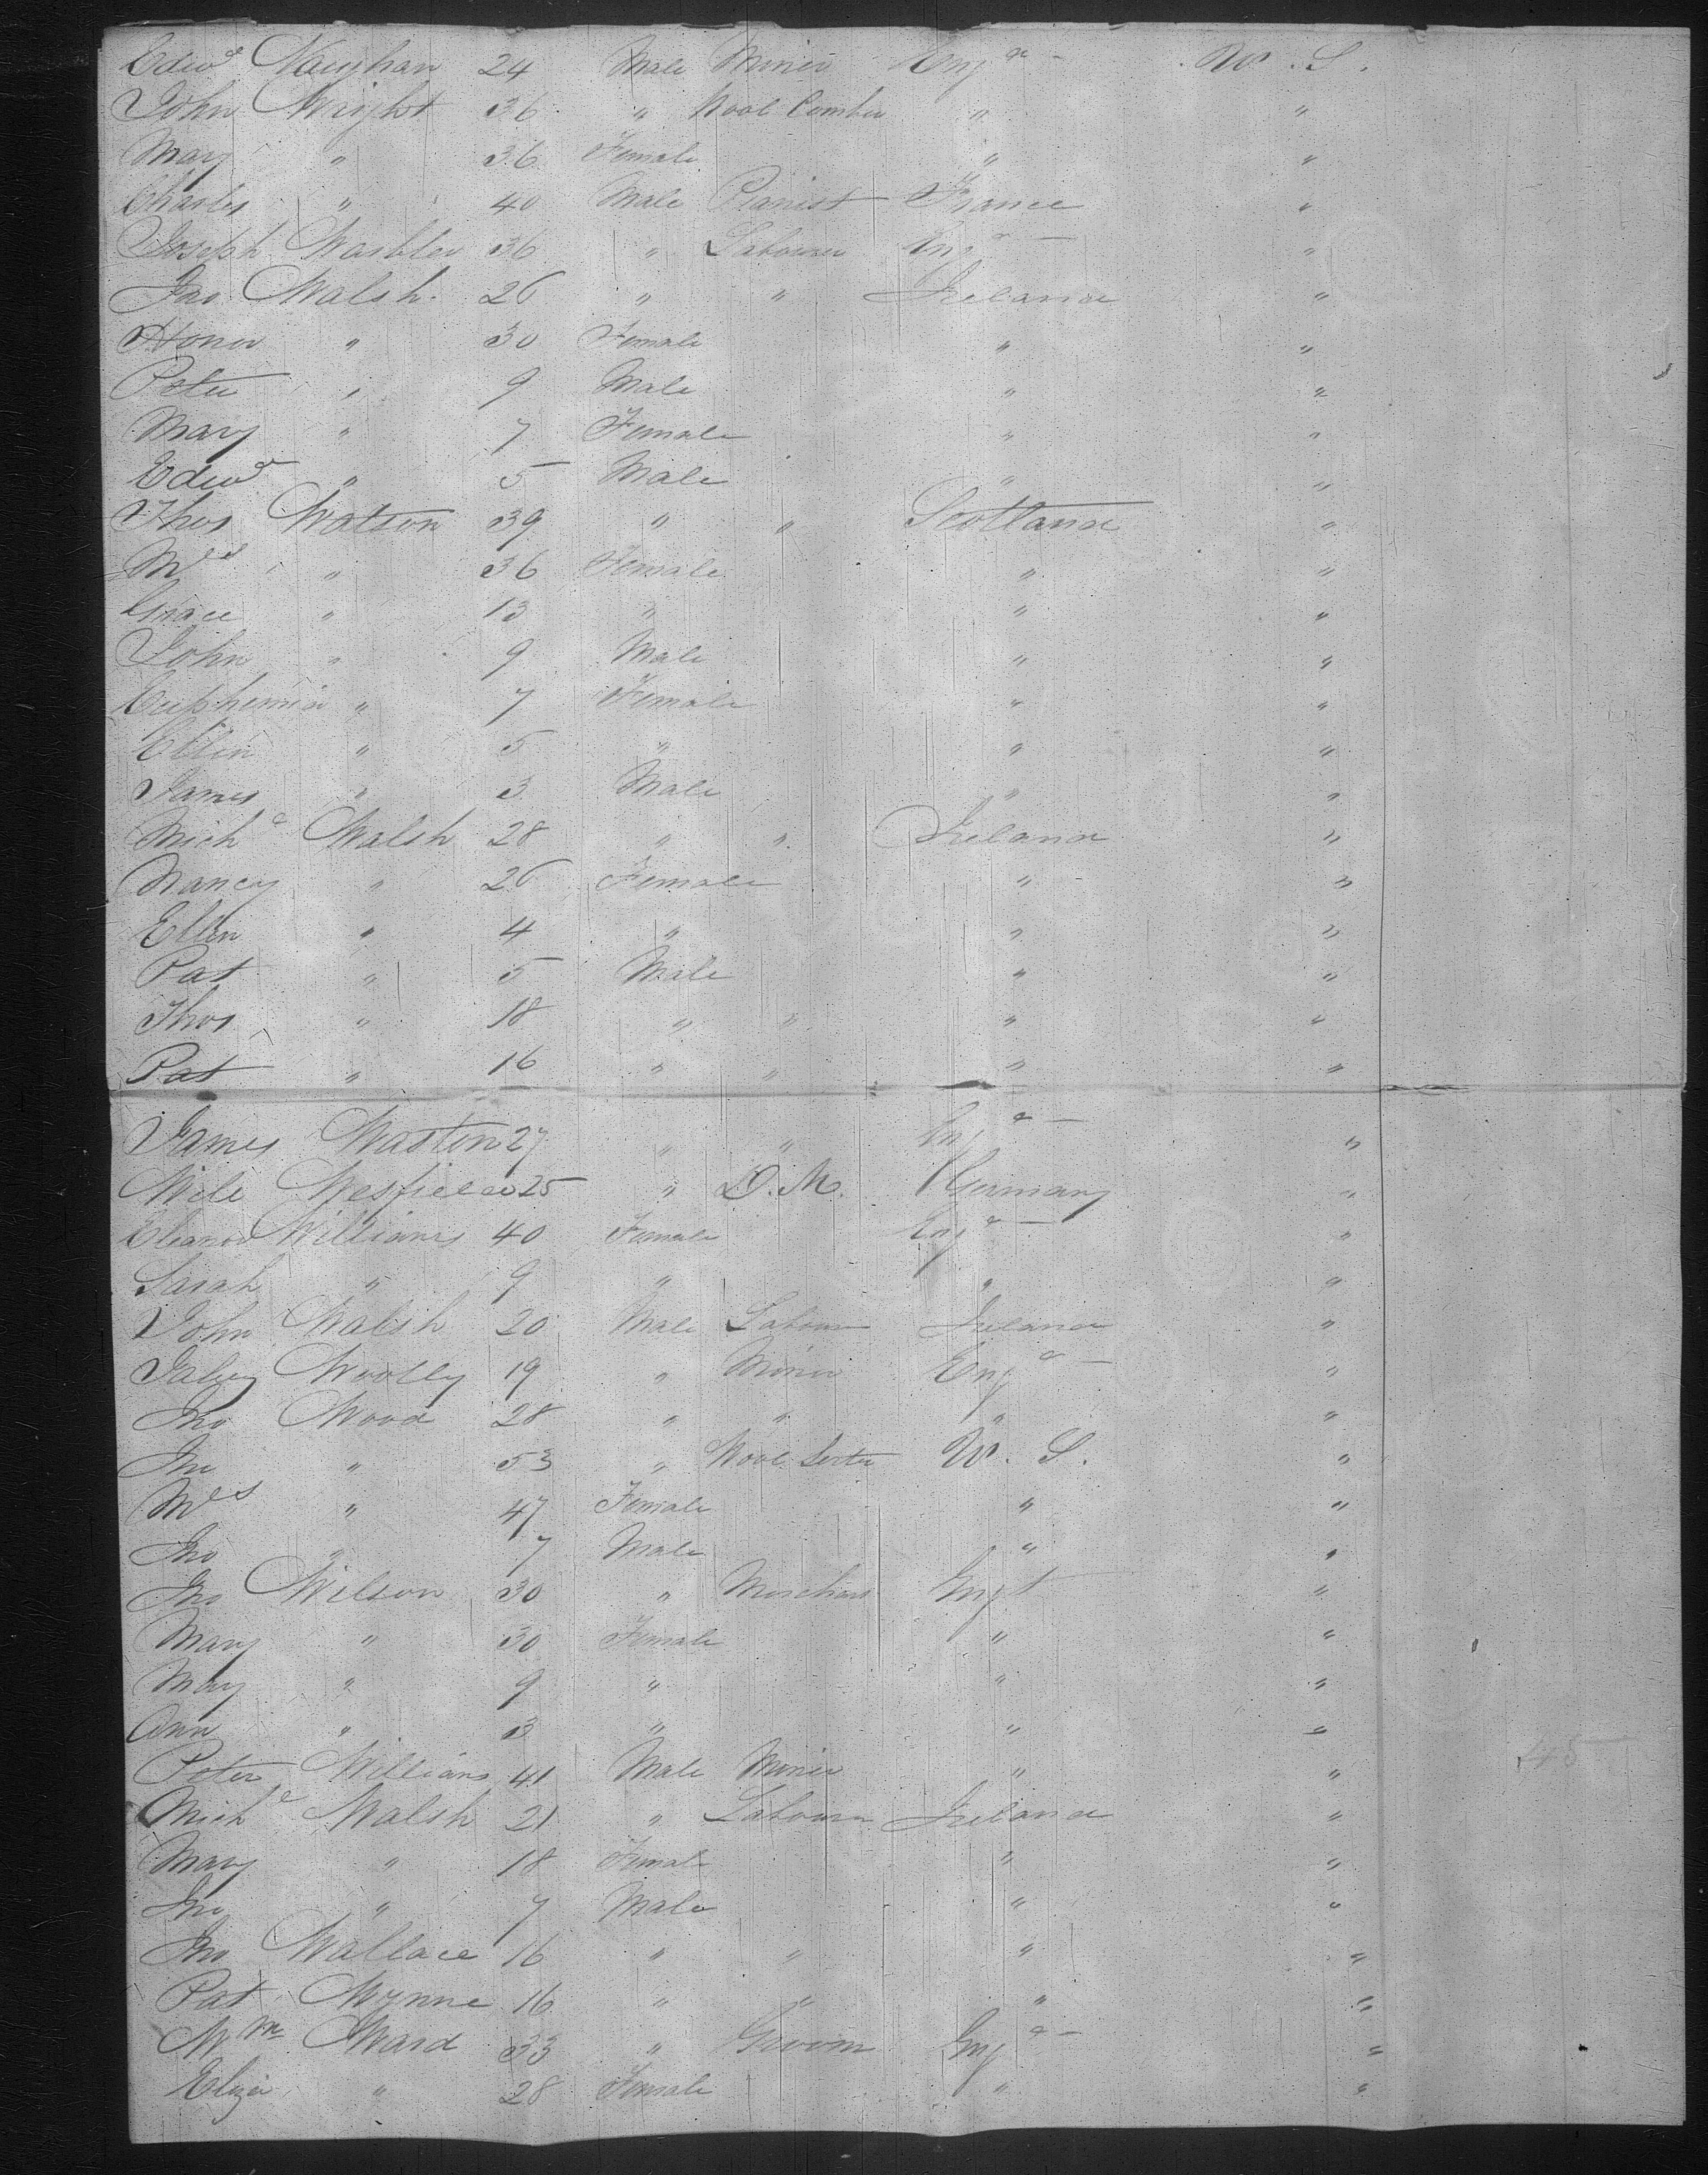 Edwd Vaughan 24 Male Miner Engd - U. S.
John Wright 36 " Wool Comber " "
Mary " 36 Female " "
Charles " 40 Male Pianist France "
Joseph 36 " Labourer Engd - "
Jno Walsh 26 " " Ireland "
Honor " 30 Female " "
Peter " 9 Male " "
Mary " 7 Female " "
Edwd " 5 Male " "
Thos Watson 39 " " Scotland "
Mrs " 36 Female " "
Grace " 13 " " "
John " 9 Male " "
Euphemia " 7 Female " "
Ellen " 5 " " "
James " 3 Male " "
Michl Walsh 28 " " Ireland "
Nancy " 26 Female " "
Ellen " 4 " " "
Pat " 5 Male " "
Thos " 18 " " " "
Pat " 16 " " " "
James Waston 27 " " Engd - "
Wesfield 25 " D. M. Germany "
Eleanor Williams 40 Female Engd - "
Sarah " 9 " " "
John Walsh 20 Male Labourer Ireland "
Woolly 19 " Miner Engd - "
Jno Wood 28 " " " "
Jno " 53 " Wool Sorter U. S. "
Mrs " 47 Female " "
Jno " 7 Male " "
Jno Wilson 30 " Merchant Engd "
Mary " 30 Female " "
Mary " 9 " " "
Ann " 3 " " "
Peter Williams 41 Male Miner " " 45
Michl Walsh 21 " Labourer Ireland "
Mary " 18 Female " "
Jno " 7 Male " "
Jno Wallace 16 " " " "
Pat Wynne 16 " " " "
Wm Ward 33 " Groom Engd - "
Eliza " 28 Female " "